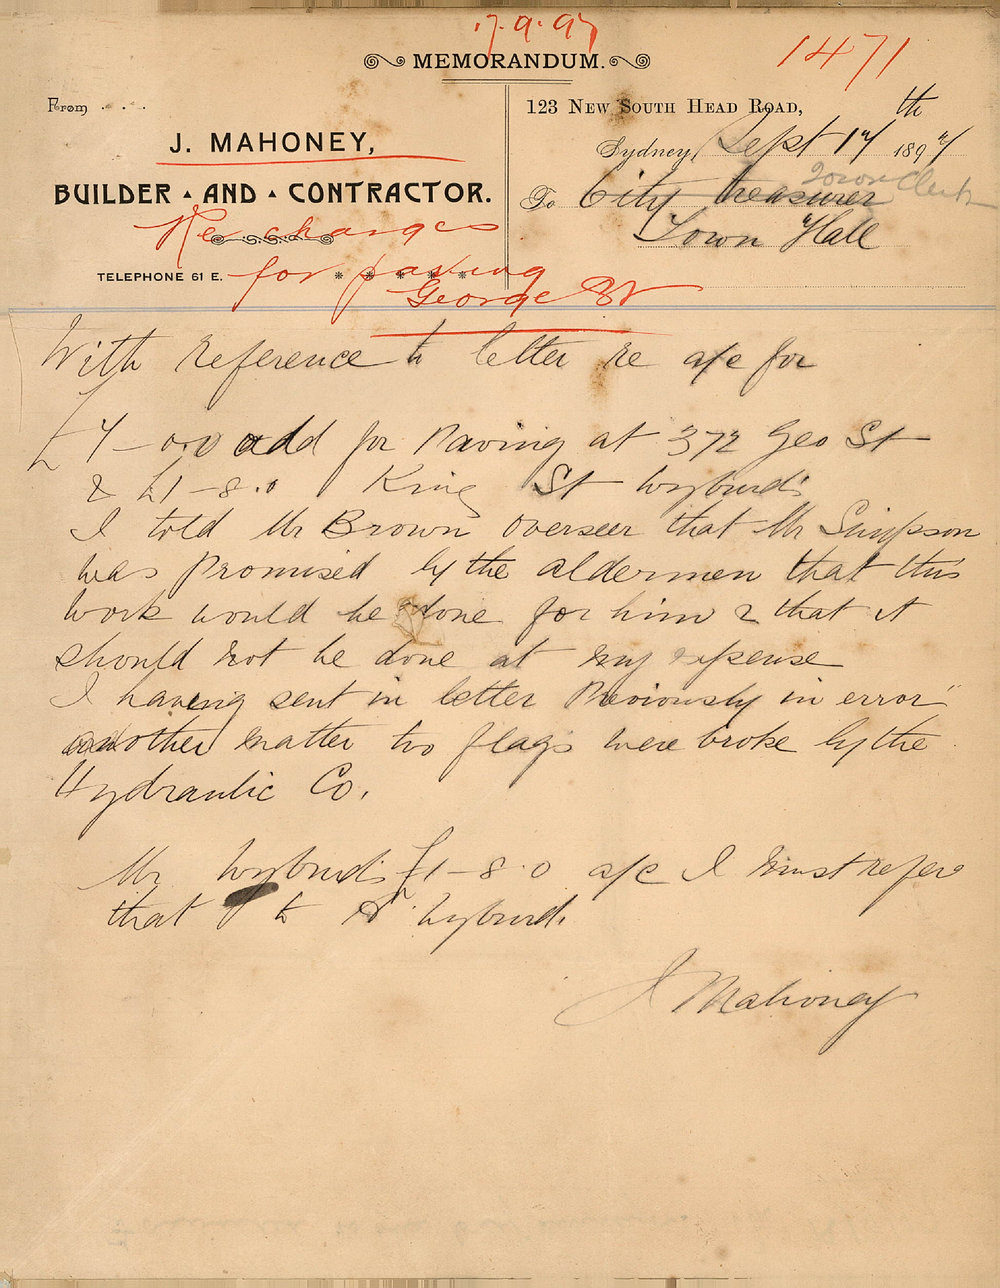 17.9.97
1471
MEMORANDUM.
From
J. MAHONEY,
BUILDER AND CONTRACTOR.
TELEPHONE 61 E.
Re charges
for paving
George St
123 NEW SOUTH HEAD ROAD,
Sydney, Sept 17th 1897
Town Clerk
To City Treasurer
Town Hall
With reference to letter re a/c for
£7-0.0 add for Paving at 372 Geo St
& £1-8.0 King St Wyburds
I told Mr Brown overseer that Mr Simpson
was Promised by the aldermen that this
work would be done for him & that it
should not be done at my expense
I having sent in letter Previously in error
another matter two flags were broke by the
Hydraulic Co.
Mr Wyburds £1-8.0 a/c I must refer
that to Wyburd.
J Mahoney